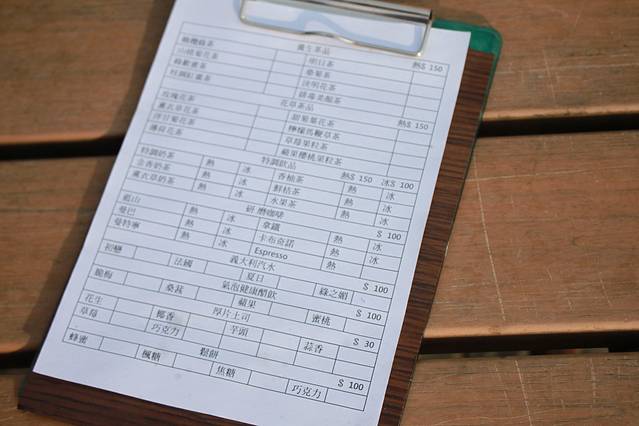 養生茶品 熱$ 150
橄欖綠茶 明日茶
山楂菊花茶 桑菊茶
決明花茶
花草茶品 熱$ 150
玫瑰花茶 甜菊菊花茶
薰衣草花茶 檸檬馬鞭草茶
洋甘菊花茶 草莓果粒茶
薄荷花茶 蘋果櫻桃果粒茶
特調飲品 熱$ 150 冰$ 100
特調奶茶 熱 冰 香柚茶 熱 冰
金香奶茶 熱 冰 鮮桔茶 熱 冰
薰衣草奶茶 熱 冰 水果茶 熱 冰
研磨咖啡 $ 100
藍山 熱 冰 拿鐵 熱 冰
曼巴 熱 冰 卡布奇諾 熱 冰
曼特寧 熱 冰 Espresso 熱 冰
義大利汽水 $ 100
初戀 法國 夏日 綠之媚
氣泡健康醋飲 $ 100
脆梅 桑葚 蘋果 蜜桃
厚片土司 $ 30
花生 椰香 芋頭 蒜香
草莓 巧克力
鬆餅 $ 100
蜂蜜 楓糖 焦糖 巧克力